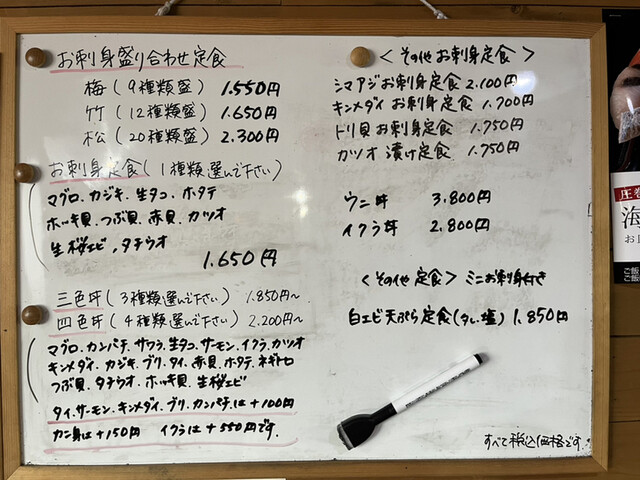 お刺身盛り合わせ定食
梅(9種類盛) 1.550円
竹(12種類盛) 1.650円
松(20種類盛) 2.300円
お刺身定食(1種類選んで下さい)
マグロ、カジキ、生タコ、ホタテ
ホッキ貝、つぶ貝、赤貝、カツオ
生桜エビ、タチウオ
1.650円
三色丼(3種類選んで下さい) 1.850円〜
四色丼(4種類選んで下さい) 2.200円〜
マグロ、カンパチ、サワラ、生タコ、サーモン、イクラ、カツオ
キンメダイ、カジキ、ブリ、タイ、赤貝、ホタテ、ネギトロ
つぶ貝、タチウオ、ホッキ貝、生桜エビ
タイ、サーモン、キンメダイ、ブリ、カンパチは+100円
カニ身は+150円 イクラは+550円です。
<その他お刺身定食>
シマアジお刺身定食 2.100円
キンメダイお刺身定食 1.700円
トリ貝お刺身定食 1.750円
カツオ漬け定食 1.750円
ウニ丼 3.800円
イクラ丼 2.800円
<その他定食>ミニお刺身付き
白エビ天ぷら定食(タレ、塩) 1.850円
すべて税込価格です。
圧巻
海
お